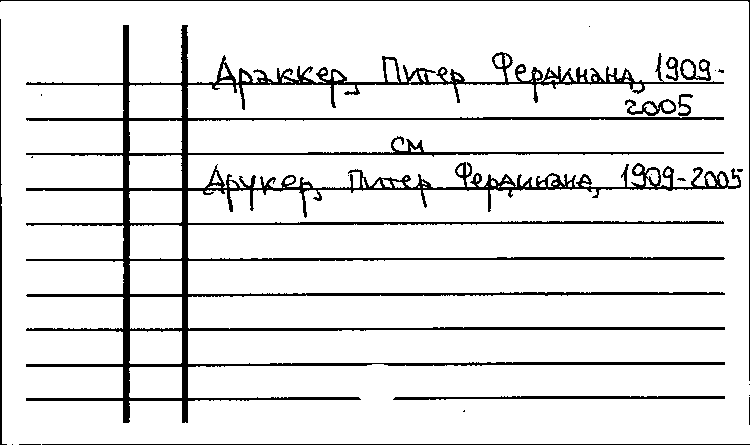 Драккер, Питер Фердинанд, 1909-
2005
см
Друкер, Питер Фердинанд, 1909-2005